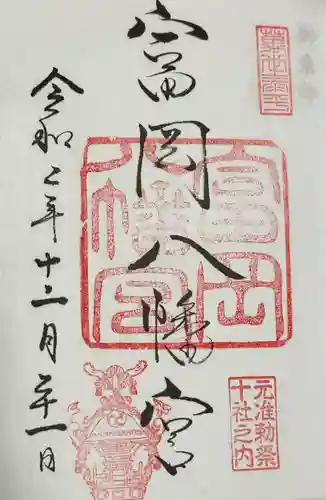 富岡八幡宮
富岡八幡宮
元准勅祭
十社之内
令和二年十二月二十一日